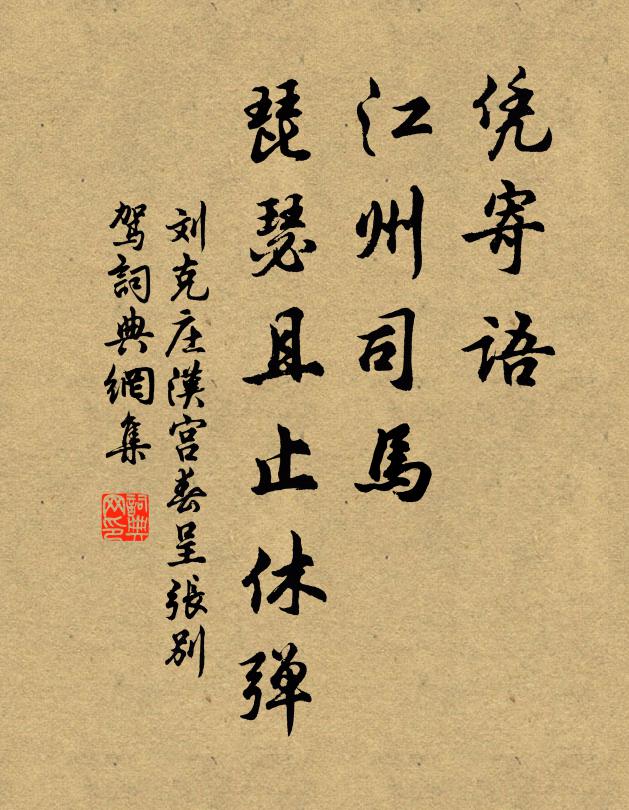 凭寄语
江州司馬
琵瑟且止休弹
刘克庄漢宫春呈張别
驾詞典網集
詞典网印